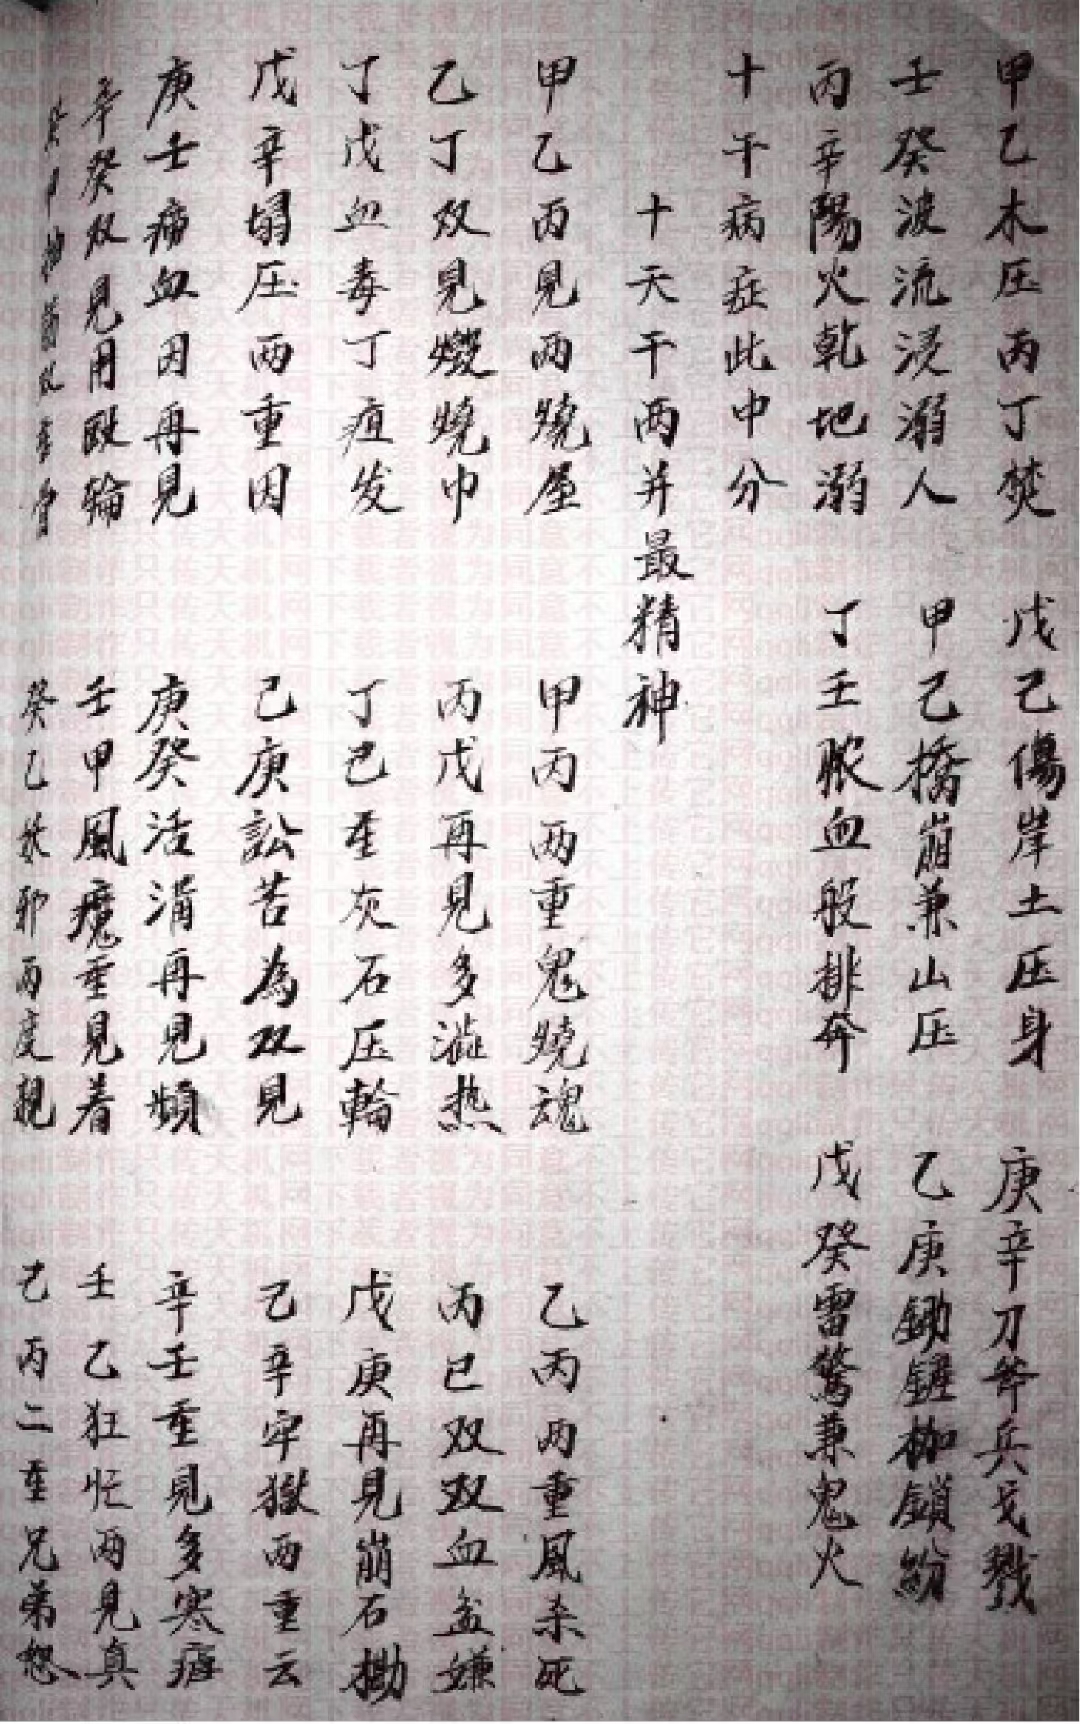 甲乙木压丙丁焚 戊己傷岸土压身 庚辛刀斧兵戈戮
壬癸波流浸溺人 甲乙橋崩兼山压 乙庚鋤鏟枷鎖紛
丙辛陽火乾地溺 丁壬脓血般排奔 戊癸雷驚兼鬼火
十干病症此中分
十天干两并最精神
甲乙丙見两燒屋 甲丙两重鬼燒魂 乙丙两重風杀死
乙丁双見燬燒巾 丙戊再見多滋热 丙巳双双血盆嫌
丁戊血毒丁疽发 丁己重灰石压輪 戊庚再見崩石拗
戊辛塌压两重因 己庚訟苦為双見 己辛牢獄两重云
庚壬痛血因再見 庚癸活涓再見頻 辛壬重見多寒癖
辛癸双見用殴輪 壬甲風魔重見着 壬乙狂忙两見真
癸甲抽筋 癸乙妖邪两度親 己丙二重兄弟怨